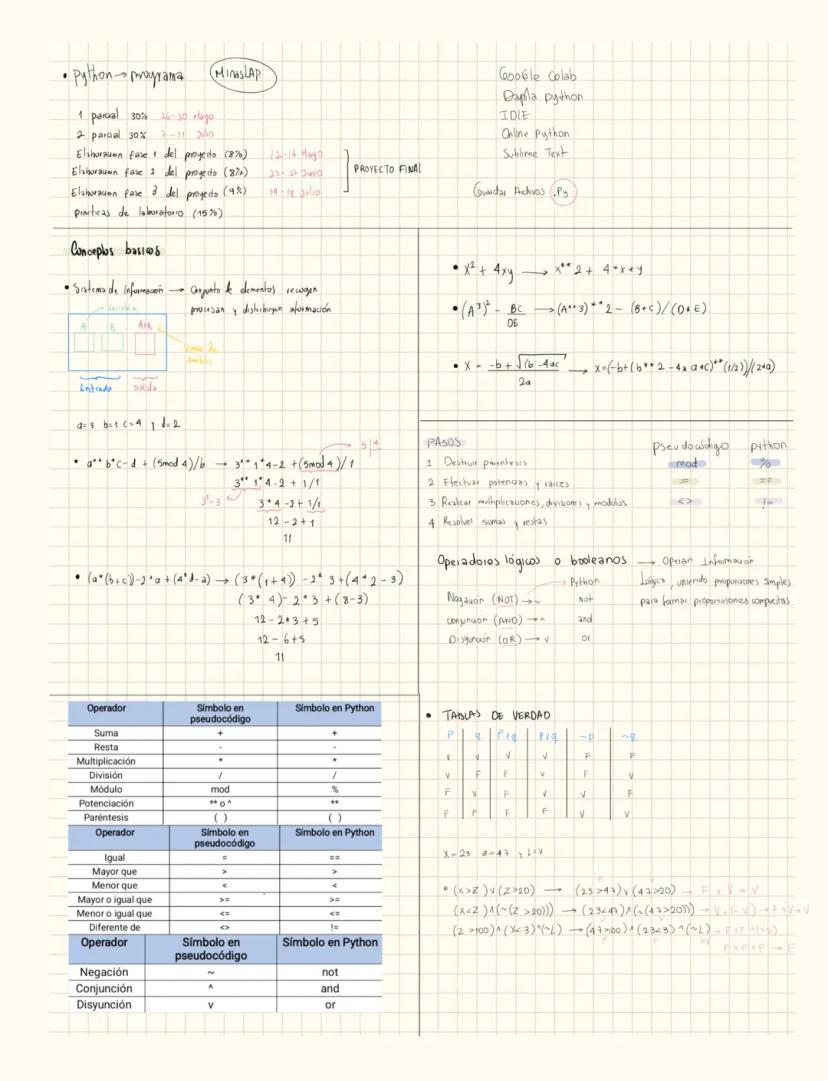 • Python → programa (MinasLAP.)
1 parcial 30% 26-30 Mayo
2 parcial 30% 7-11 Julio
Elaboracion fase 1 del proyecto (8%) 12-16 Mayo
Elaboracion fase 2 del proyecto (8%) Junio
Elaboracion fase 3 del proyecto (9%) 14-18 Julio
PROYECTO FINAL
practicas de laboratorio (15%)
Google Colab
python
IDLE
Online Python
Sublime Text
Guardar Archivos .Py
Conceptos basicos
• Sistema de Información → Conjunto de elementos recogen
procesan y distribuyen información
Variable
A B A+B
Suma de
ambos
Entrada Salida
a=3 b=1 c=4 y d=2
5|4
• a** b*c-d + (5mod 4)/b → 3** 1*4-2 +(5mod4)/1
3** 1*4-2 + 1/1
3¹=3 3*4-2+1/1
12-2+1
11
• (a*(b+c))-2*a+(4*d-a) → (3*(1+4)) -2* 3+(4*2-3)
(3* 4)- 2*3+(8-3)
12-2*3+5
12-6+5
11
• x² + 4xy → x** 2 + 4*x*y
• (A³)² - BC/DE → (A**3)**2-(B*C)/(D*E)
• X = -b+√(b-4ac / 2a → x=(-b+(b**2-4* a*c)**(1/2))/(2*a)
PASOS
1 Destruir parentesis
2 Efectuar potencias y raices
3 Realizar multiplicaciones, divisiones y modulos
4 Resolver sumas y restas
pseudocódigo python
mod %
= ==
<> !=
Operadores lógicos o booleanos → Operan Información
Lógica, uniendo proposiciones simples
para formar proposiciones compuestas
Python
Negación (NOT) →~ Not
conjuncion (AND) →^ and
Disyuncion (OR) → v or
Operador Símbolo en pseudocódigo Símbolo en Python
Suma + +
Resta - -
Multiplicación * *
División / /
Módulo mod %
Potenciación ** o ^ **
Paréntesis ( ) ( )
Operador Símbolo en pseudocódigo Símbolo en Python
Igual = ==
Mayor que > >
Menor que < <
Mayor o igual que >= >=
Menor o igual que <= <=
Diferente de <> !=
Operador Símbolo en pseudocódigo Símbolo en Python
Negación ~ not
Conjunción ^ and
Disyunción v or
• TABLAS DE VERDAD
P q P∧q P∨q ~p ~q
V V V V F F
V F F V F V
F V F V V F
F F F F V V
X=23 z=47 y L=V
• (x>z)∨(z>20) → (23>47)∨(47>20) → F ∨ V → V
(x<z)∧(~(z>20))) → (23<47)∧(~(47>20)))
(z>100)∧(x<3)^(~L) → (47>100)∧(23<3)^(~L) → F∧F∧(~V)
F∧F∧F → F